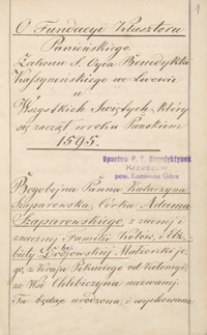 1
O Fundacyi Klasztoru
Panieńskiego
Zakonu S. Oyca Benedykta
Kassyneńskiego we Lwowie
u
Wszystkich Świętych, który
się zaczął w roku Pańskim
1595.
Opactwo P. P. Benedyktynek
pow. Kamienna Góra
Bogobojna Panna Katarzyna
Saporowska, Córka Adama
Saporowskiego, z zacnej i
znacznej Familii
Małżonki je-
go, z Kraju Pokuckiego od Kołomyi,
ze Wsi Chlebiczyna nazwanej.
Ta będąc urodzona i wychowana